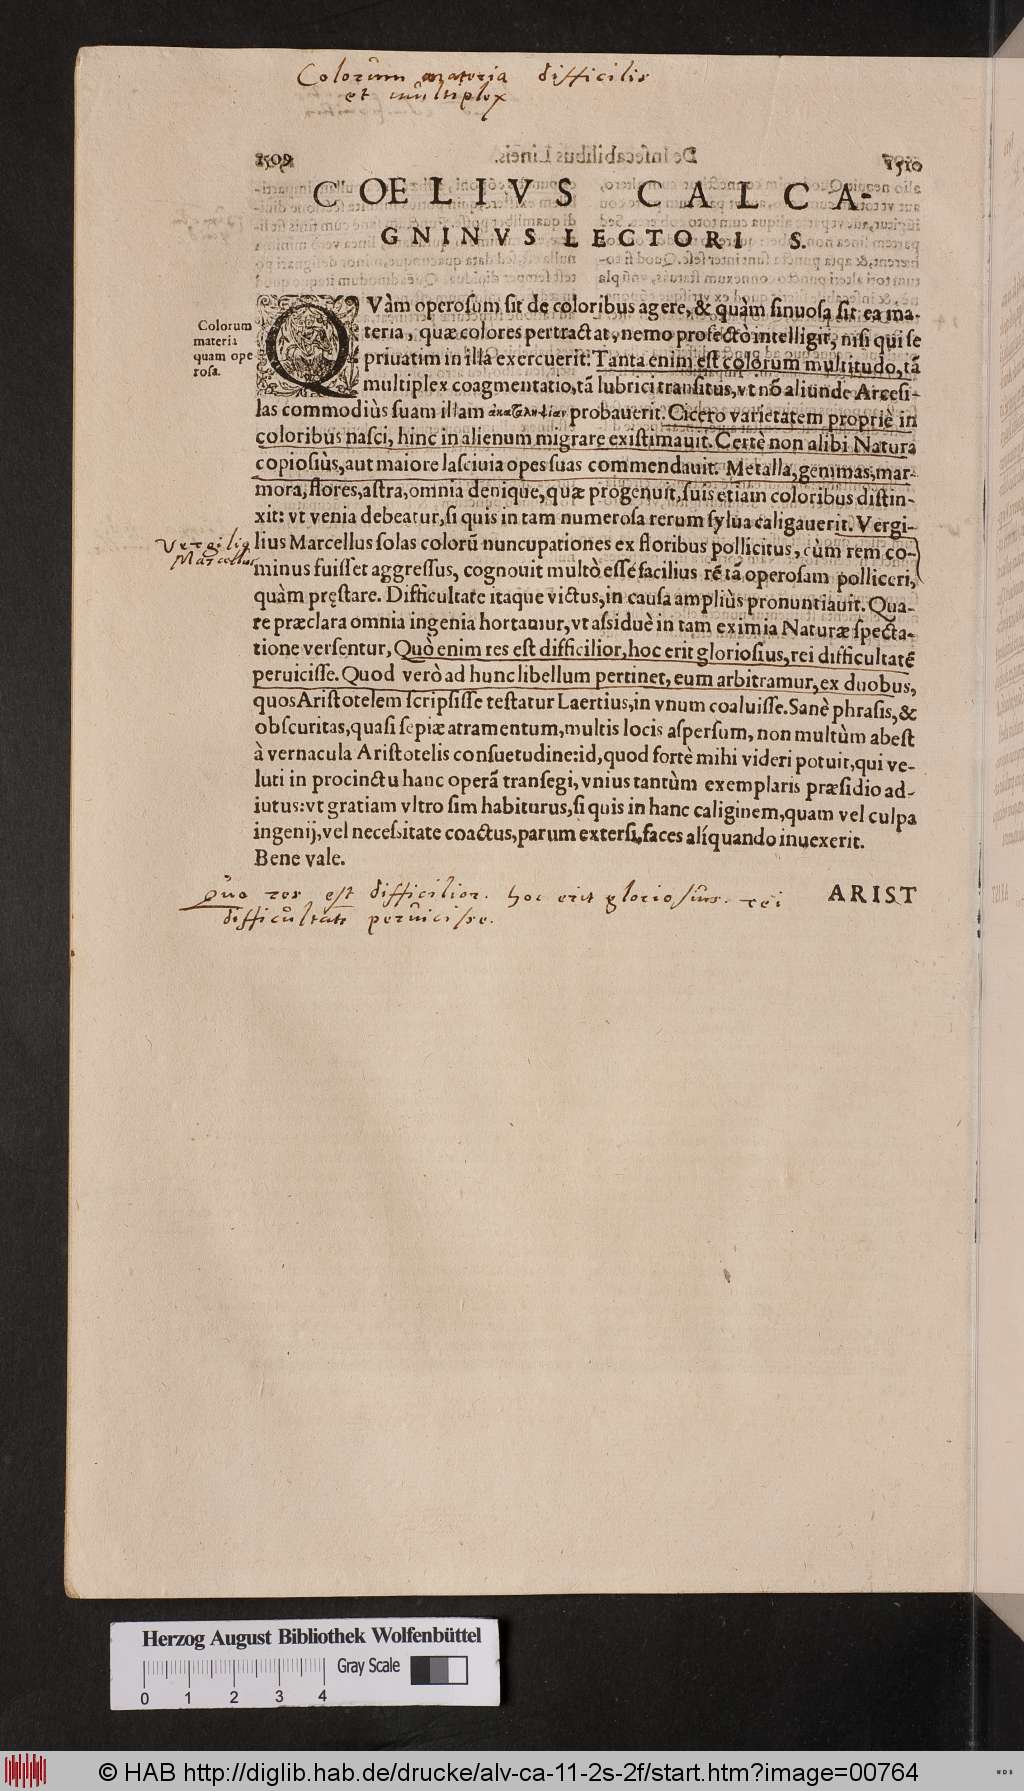 Colorum materia difficilis
et multiplex
1509
1510
COELIVS CALCA-
GNINVS LECTORI S.
Colorum
materia
quam ope
rosa.
QVàm operosum sit de coloribus agere, & quàm sinuosa sit ea ma-
teria, quæ colores pertractat, nemo profectò intelligit, nisi qui se
priuatim in illa exercuerit. Tanta enim est colorum multitudo, tā
multiplex coagmentatio, tā lubrici transitus, vt nō aliunde Arcesi-
las commodiùs suam illam ἀκαταληψίαν probauerit. Cicero varietatem propriè in
coloribus nasci, hinc in alienum migrare existimauit. Certè non alibi Natura
copiosiùs, aut maiore lasciuia opes suas commendauit. Metalla, gemmas, mar-
mora, flores, astra, omnia denique, quæ progenuit, suis etiam coloribus distin-
xit: vt venia debeatur, si quis in tam numerosa rerum sylua caligauerit. Vergi-
lius Marcellus solas colorū nuncupationes ex floribus pollicitus, cùm rem co-
minus fuisset aggressus, cognouit multò esse facilius rē tā operosam polliceri,
quàm pręstare. Difficultate itaque victus, in causa ampliùs pronuntiauit. Qua-
re præclara omnia ingenia hortamur, vt assiduè in tam eximia Naturæ specta-
tione versentur, Quò enim res est difficilior, hoc erit gloriosius, rei difficultatē
peruicisse. Quod verò ad hunc libellum pertinet, eum arbitramur, ex duobus,
quos Aristotelem scripsisse testatur Laertius, in vnum coaluisse. Sanè phrasis, &
obscuritas, quasi sepiæ atramentum, multis locis aspersum, non multùm abest
à vernacula Aristotelis consuetudine: id, quod fortè mihi videri potuit, qui ve-
luti in procinctu hanc operā transegi, vnius tantùm exemplaris præsidio ad-
iutus: vt gratiam vltro sim habiturus, si quis in hanc caliginem, quam vel culpa
ingenij, vel necessitate coactus, parum extersi, faces aliquando inuexerit.
Bene vale.
Vergilius
Marcellus
ARIST
Quo res est difficilior. hoc erit gloriosius. rei
difficultatē peruicisse.
Herzog August Bibliothek Wolfenbüttel
Gray Scale
0 1 2 3 4
© HAB http://diglib.hab.de/drucke/alv-ca-11-2s-2f/start.htm?image=00764